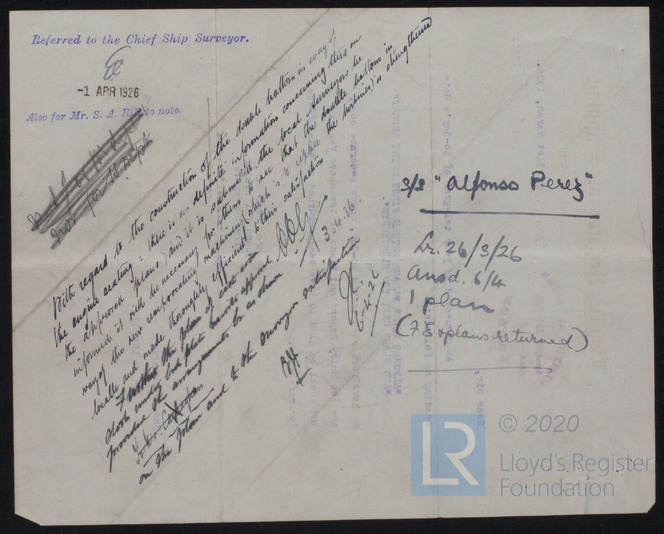 Referred to the Chief Ship Surveyor.
-1 APR 1926
Also for Mr. S. A. Hill to note.
With regard to the construction of the double bottom in way of
the engine seating: there is no definite information concerning this on
the approved plans, and it is submitted the local Surveyors be
informed it will be necessary for them to see that the double bottom in
way of the new reciprocating machinery (which is to replace the turbines) is strengthened
locally and made thoroughly efficient to their satisfaction
3.4.26.
6.4.26
the plan of
under bed plate be approved
provided the arrangements be as shown
on the plan and to the Surveyors satisfaction
S/S "Alfonso Perez"
Lr. 26/3/26
Ansd. 6/4
1 plan
(7 E plans returned)
LR
© 2020
Lloyd's Register
Foundation